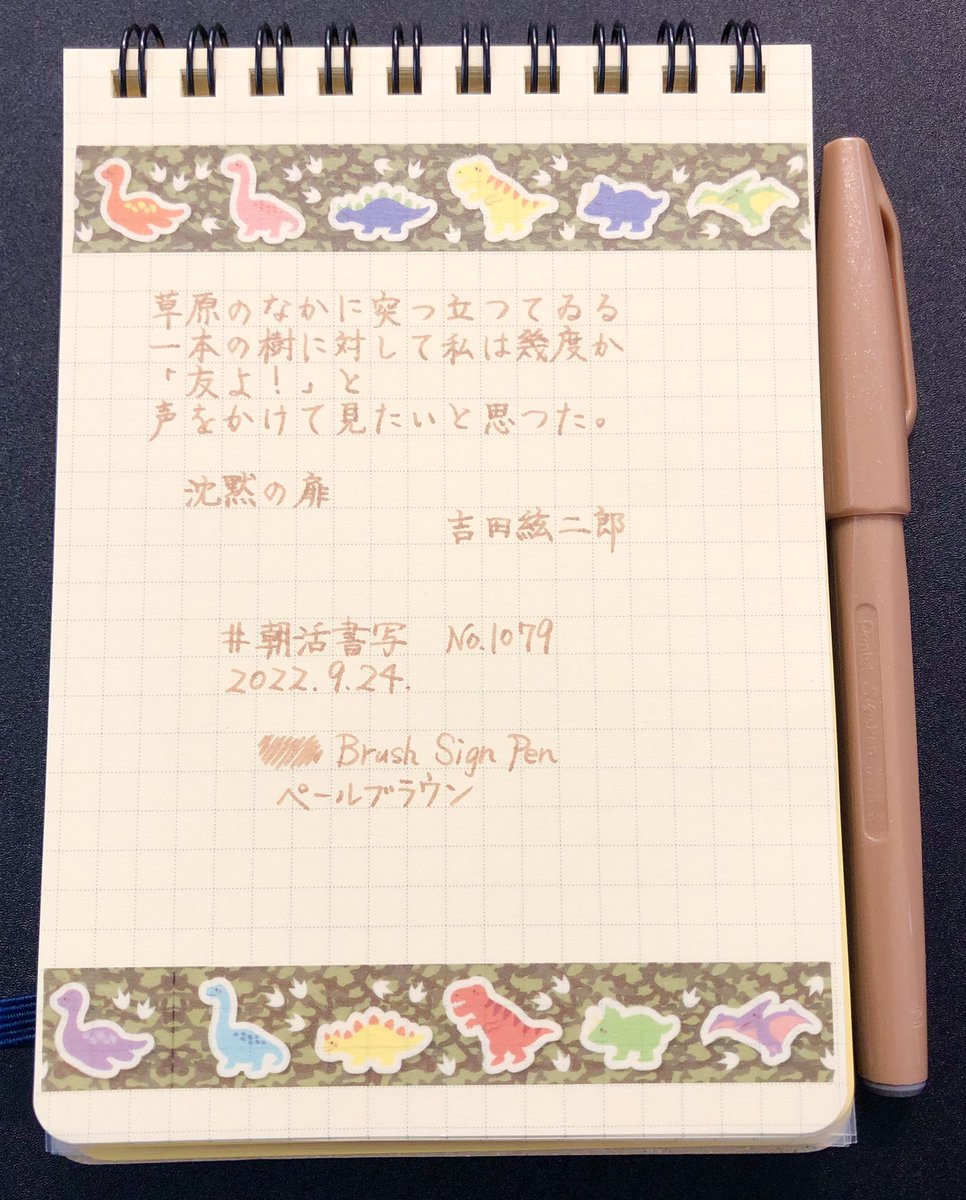 草原のなかに突っ立つてゐる
一本の樹に対して私は幾度か
「友よ！」と
声をかけて見たいと思つた。
沈黙の扉
吉田絃二郎
#朝活書写 No.1079
2022.9.24.
Brush Sign Pen
ペールブラウン